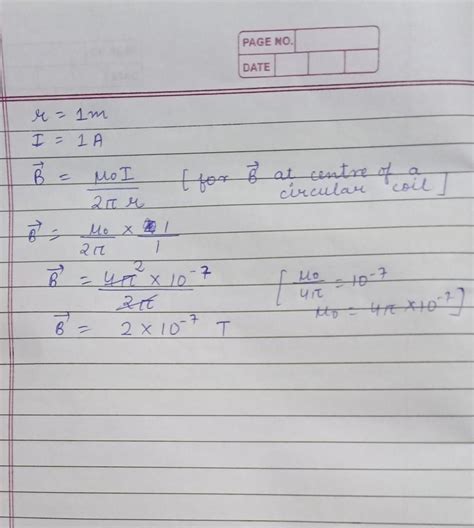 PAGE NO.
DATE
r = 1m
I = 1A
B⃗ = μ₀I / 2π r [for B⃗ at centre of a circular coil]
B⃗ = μ₀/2π × 1/1
B⃗ = 4π² × 10⁻⁷ / 2π [μ₀/4π = 10⁻⁷
μ₀ = 4π × 10⁻⁷]
B⃗ = 2 × 10⁻⁷ T